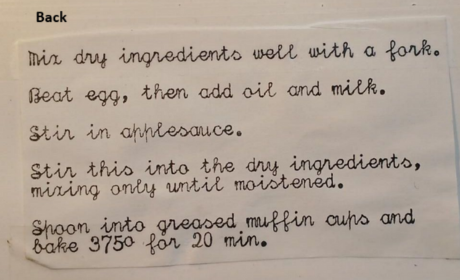 Back
Mix dry ingredients well with a fork.
Beat egg, then add oil and milk.
Stir in applesauce.
Stir this into the dry ingredients,
mixing only until moistened.
Spoon into greased muffin cups and
bake 375° for 20 min.